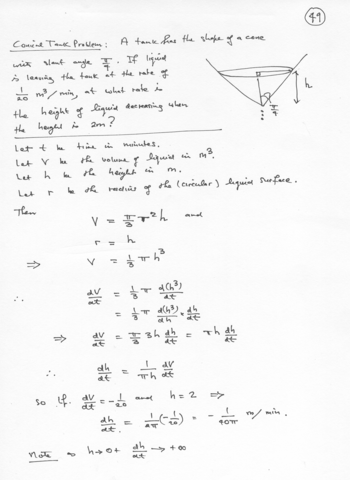 49
Conical Tank Problem: A tank has the shape of a cone
with slant angle π/4. If liquid
is leaving the tank at the rate of
1/20 m³/min, at what rate is
the height of liquid decreasing when
the height is 2m?
h
π/4
Let t be time in minutes.
Let V be the volume of liquid in m³.
Let h be the height in m.
Let r be the radius of the (circular) liquid surface.
Then
V = π/3 r² h and
r = h
⇒ V = 1/3 π h³
∴ dV/dt = 1/3 π d(h³)/dt
= 1/3 π d(h³)/dh × dh/dt
⇒ dV/dt = π/3 3h dh/dt = πh dh/dt
∴ dh/dt = 1/πh dV/dt
So if dV/dt = -1/20 and h = 2 ⇒
dh/dt = 1/2π (-1/20) = - 1/40π m/min.
Note as h → 0+ dh/dt → +∞